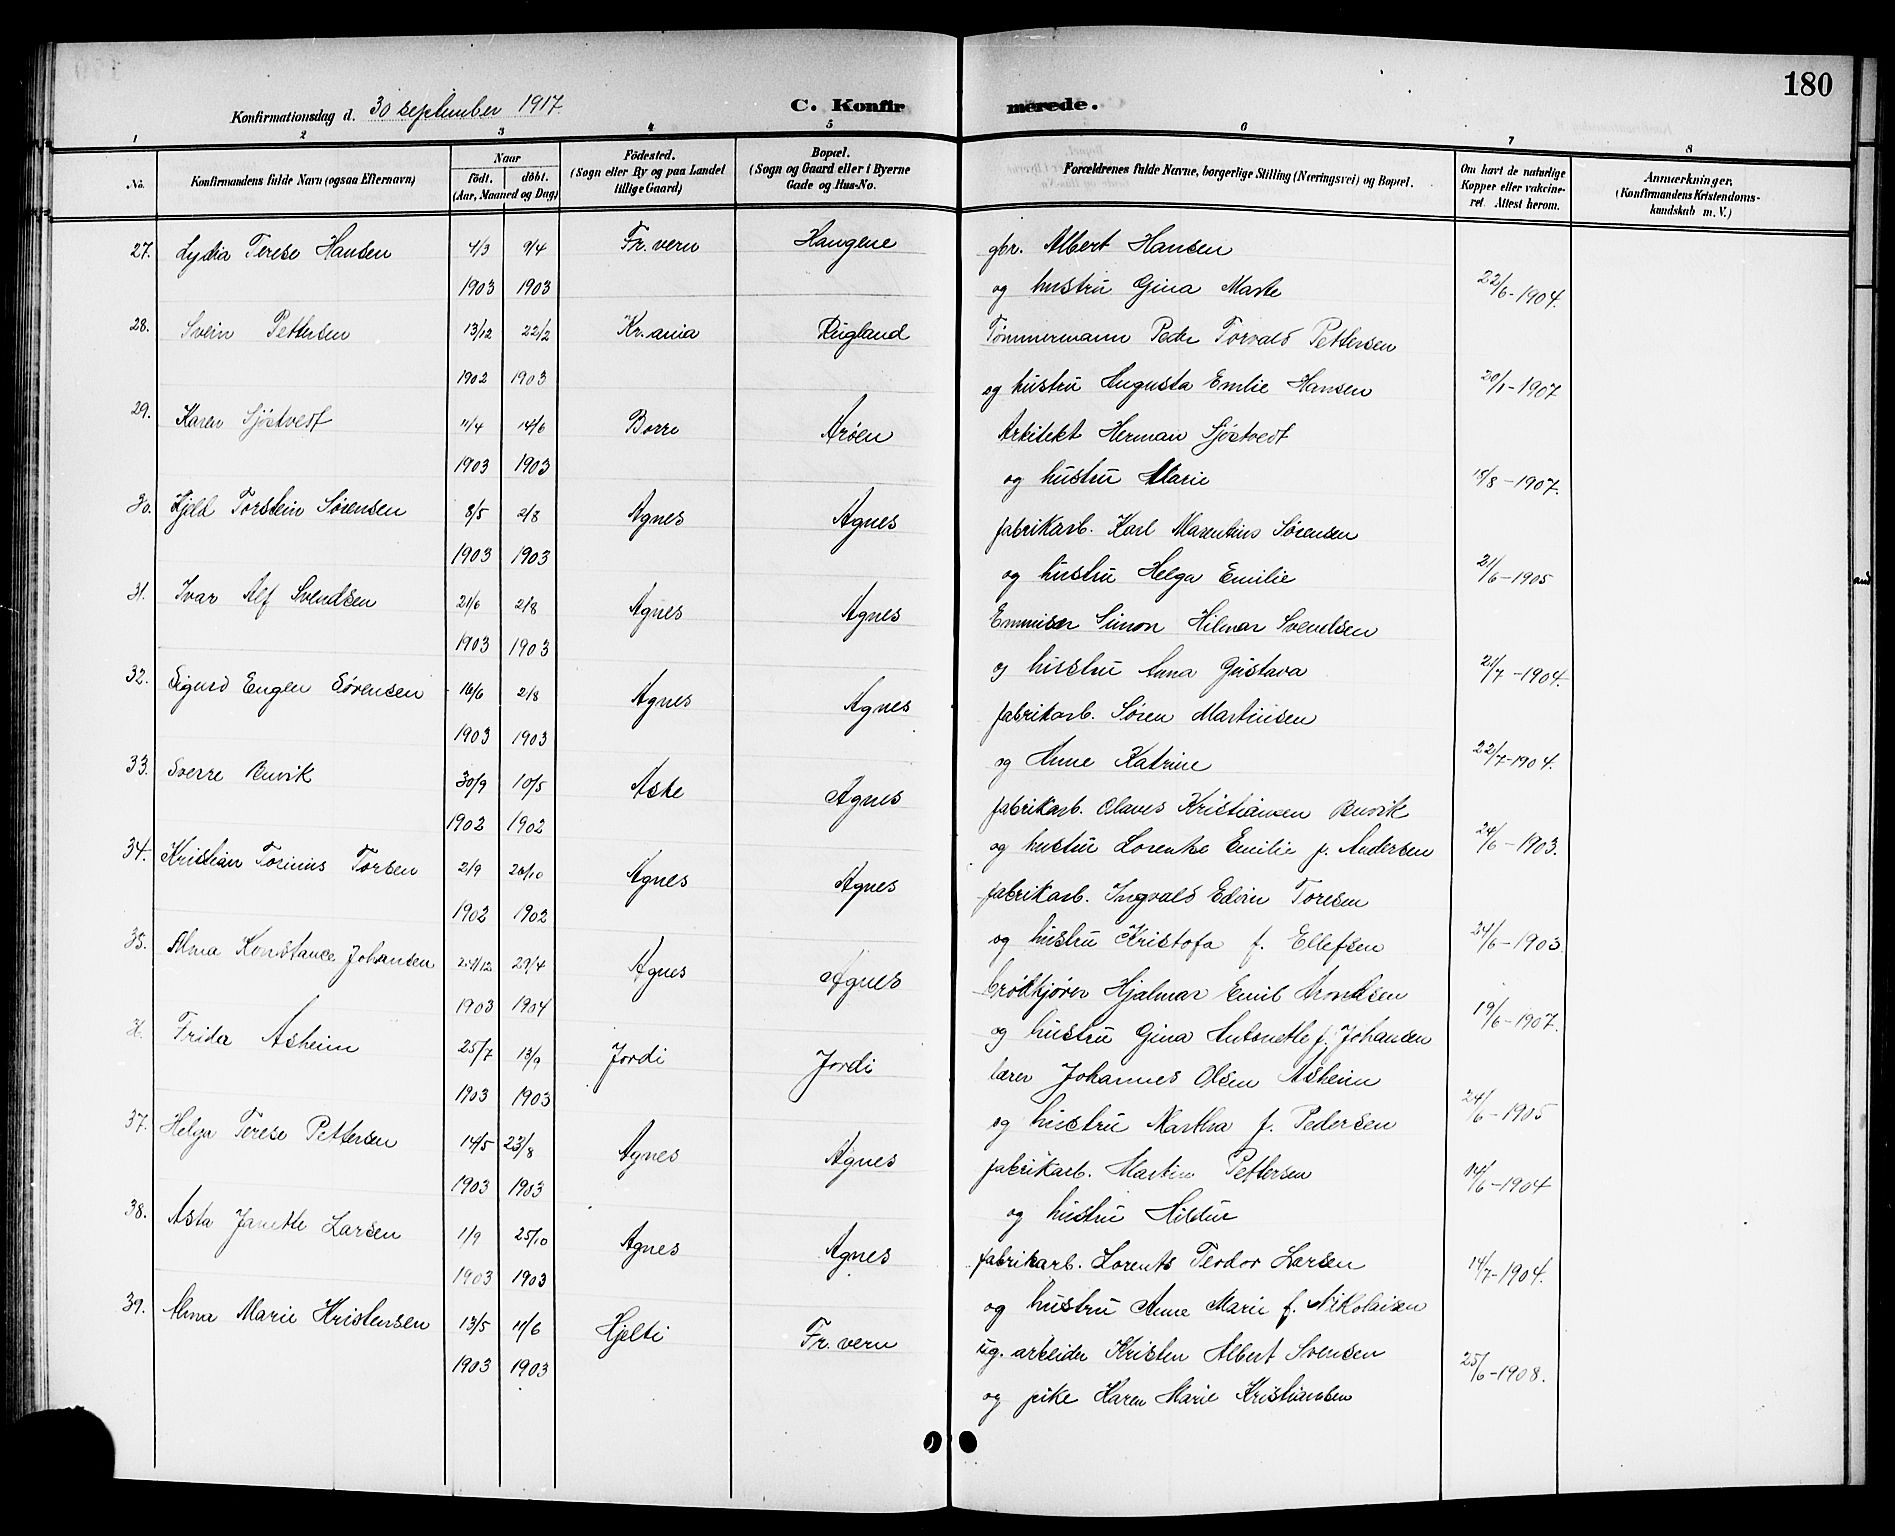 180
Konfirmationsdag d. 30 september 1917.
C. Konfirmerede.
1 2 3 4 5 6 7 8
No. Konfirmandens fulde Navn (ogsaa Efternavn) Naar födt. döbt. (Aar, Maaned og Dag) Födested. (Sogn eller By og paa Landet tillige Gaard) Bopæl. (Sogn og Gaard eller i Byerne Gade og Hus-No. Forældrenes fulde Navne, borgerlige Stilling (Næringsvei) og Bopæl. Om havt de naturlige Kopper eller vakcineret. Attest herom. Anmærkninger. (Konfirmandens Kristendomskundskab m. V.)
27. Lydia Terese Hansen 4/3 9/4 Fr.vern Haugene gbr. Albert Hansen
1903 1903 og hustru Gina Marte 22/6-1904.
28. Svein Pettersen 13/12 22/2 Kr.ania Rugland Tømmermann Peder Torvald Pettersen
1902 1903 og hustru Augusta Emilie Hansen 20/1-1907
29. Karen Sjøstvedt 11/4 14/6 Borre Arøen Arkitekt Herman Sjøstvedt
1903 1903 og hustru Marie 15/8-1907.
30. Kjeld Torstein Sørensen 8/5 2/8 Agnes Agnes fabrikarb. Karl Marentius Sørensen
1903 1903 og hustru Helga Emilie 21/6-1905
31. Ivar Alf Svendsen 21/6 2/8 Agnes Agnes Simon Hilmar Svendsen
1903 1903 og hustru Anna Gustava 21/7-1904.
32. Sigurd Eugen Sørensen 16/6 2/8 Agnes Agnes fabrikarb. Søren Martinsen
1903 1903 og Anne Katrine 22/7-1904.
33. Sverre Buvik 30/9 10/5 Aske Agnes fabrikarb. Olaves Kristiansen Buvik
1902 1902 og hustru Lorentse Emilie f. Andersen 24/6-1903.
34. Kristian Torinius Torsen 2/9 26/10 Agnes Agnes fabrikarb. Ingvald Edvin Toresen
1902 1902 og hustru Kristofa f. Ellefsen 24/6-1903.
35. Alma Konstance Johansen 29/4 Agnes Agnes brødkjører Hjalmar Emil Arontsen
1903 1904 og hustru Gina Antonette f. Johansen 19/6-1907.
Frida Asheim 25/7 13/9 Jordi Jordi lærer Johannes Olsen Asheim
1903 1903 og hustru Martha f. Pedersen 24/6-1905
37. Helga Terese Pettersen 14/5 23/8 Agnes Agnes fabrikarb. Martin Pettersen
1903 1903 og hustru Hildur 14/6-1904
38. Asta Janette Larsen 1/9 25/10 Agnes Agnes fabrikarb. Lorents Teodor Larsen
1903 1903 og hustru Anne Marie f. Nikolaisen 14/7-1904.
39. Alma Marie Kristensen 13/5 11/6 Hjelti Fr.vern arbeider Kristen Albert Svensen
1903 1903 og pike Karen Marie Kristiansen 25/6-1908.